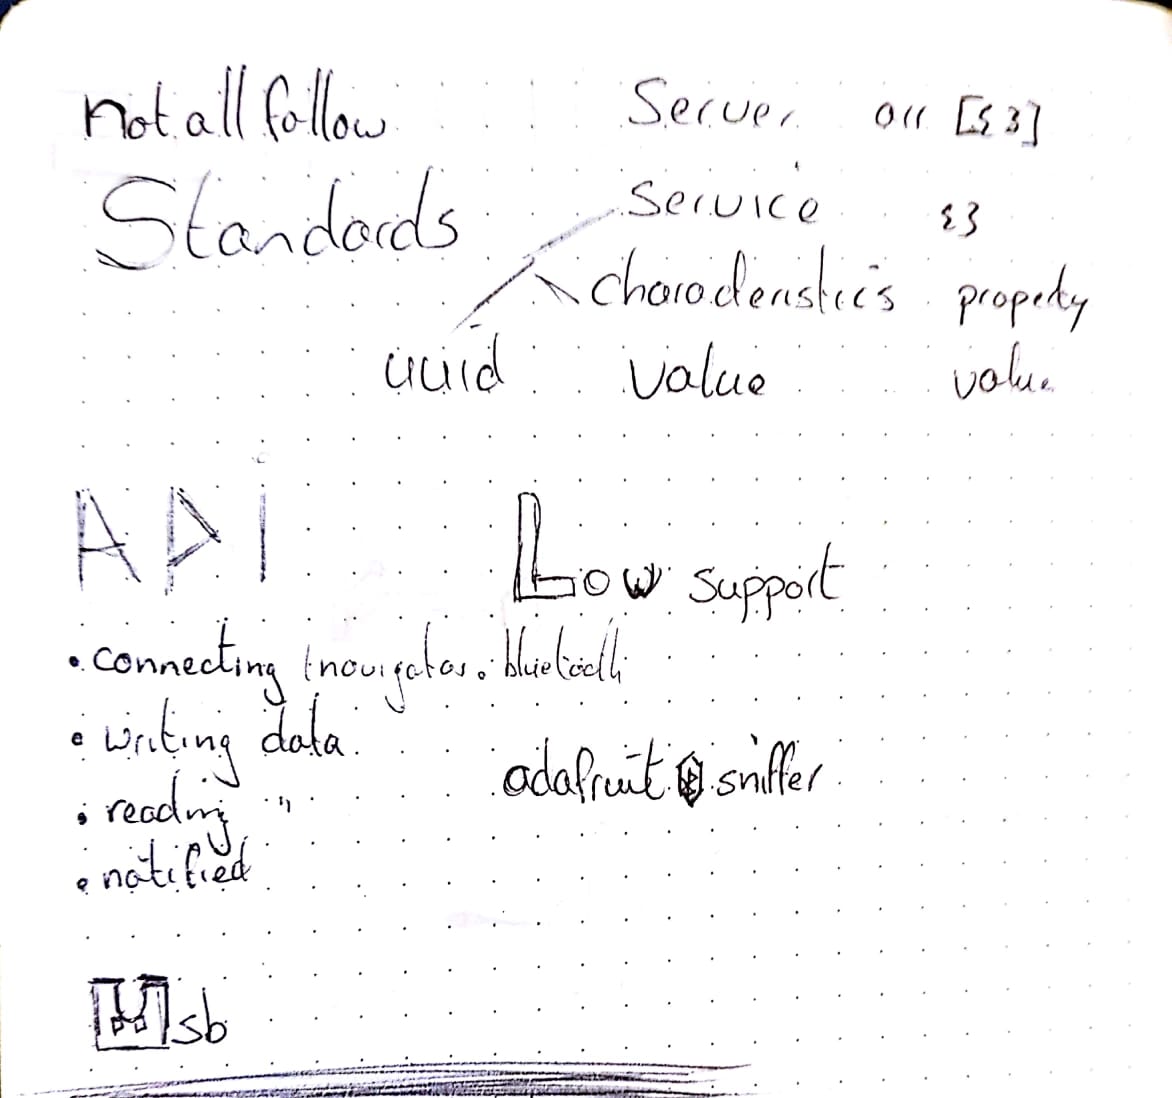 not all follow
Standards
Server arr [{}]
Service {}
characteristics property
uuid value value
API
Low support
• connecting navigator.bluetooth
• writing data
• reading "
• notified
adafruit sniffer
Usb